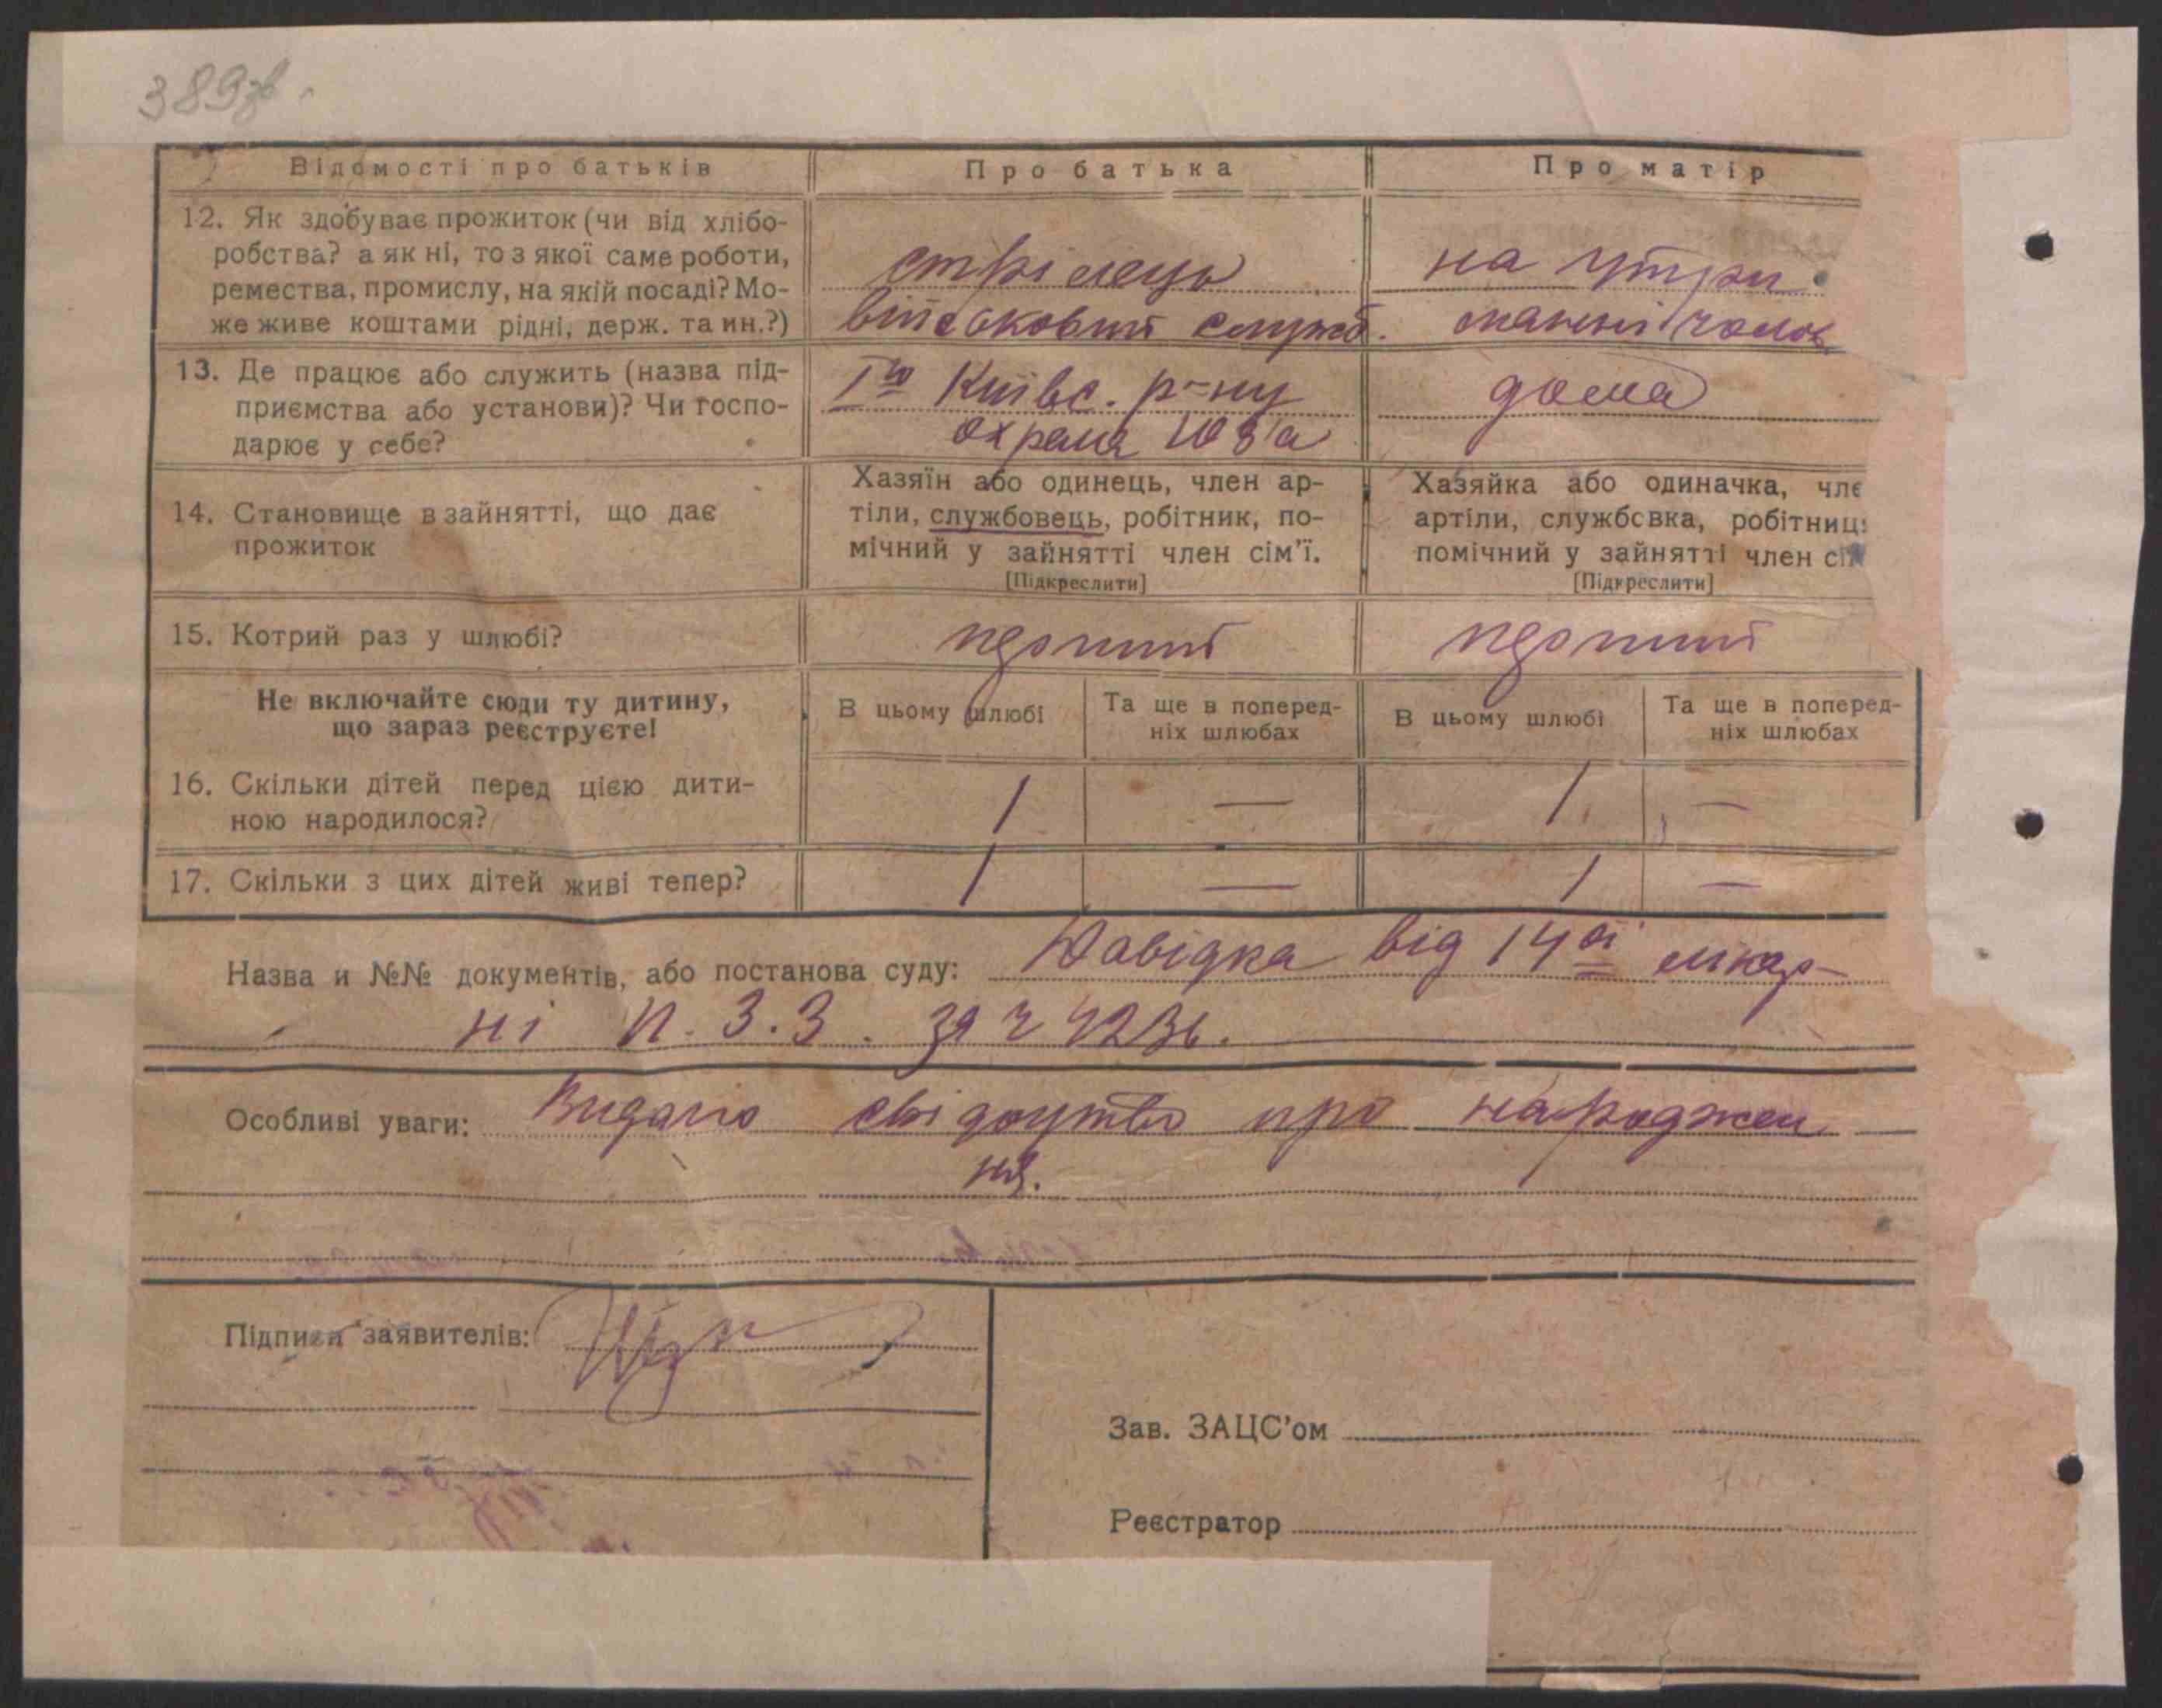 389зв.
Відомості про батьків
Про батька
Про матір
12. Як здобуває прожиток (чи від хлібо-
робства? а як ні, то з якої саме роботи,
ремества, промислу, на якій посаді? Мо-
же живе коштами рідні, держ. та ин.?)
стрілець
військовий служб.
на утри
манні чолов
13. Де працює або служить (назва під-
приємства або установи)? Чи госпо-
дарює у себе?
Іго Київс. р-ну
охрана ЮЗа
дома
14. Становище в зайнятті, що дає
прожиток
Хазяїн або одинець, член ар-
тіли, службовець, робітник, по-
мічний у зайнятті член сім'ї.
[Підкреслити]
Хазяйка або одиначка, чле
артіли, службовка, робітниц
помічний у зайнятті член сі
[Підкреслити]
15. Котрий раз у шлюбі?
перший
перший
Не включайте сюди ту дитину,
що зараз реєструєте!
В цьому шлюбі
Та ще в поперед-
ніх шлюбах
В цьому шлюбі
Та ще в поперед-
ніх шлюбах
16. Скільки дітей перед цією дити-
ною народилося?
1 — 1 —
17. Скільки з цих дітей живі тепер?
1 — 1 —
Назва и №№ документів, або постанова суду: Довідка від 14ої лікар-
ні П. З. З. за
Особливі уваги: Видано свідоцтво про народжен
ня.
Підписи заявителів:
Зав. ЗАЦС'ом
Реєстратор